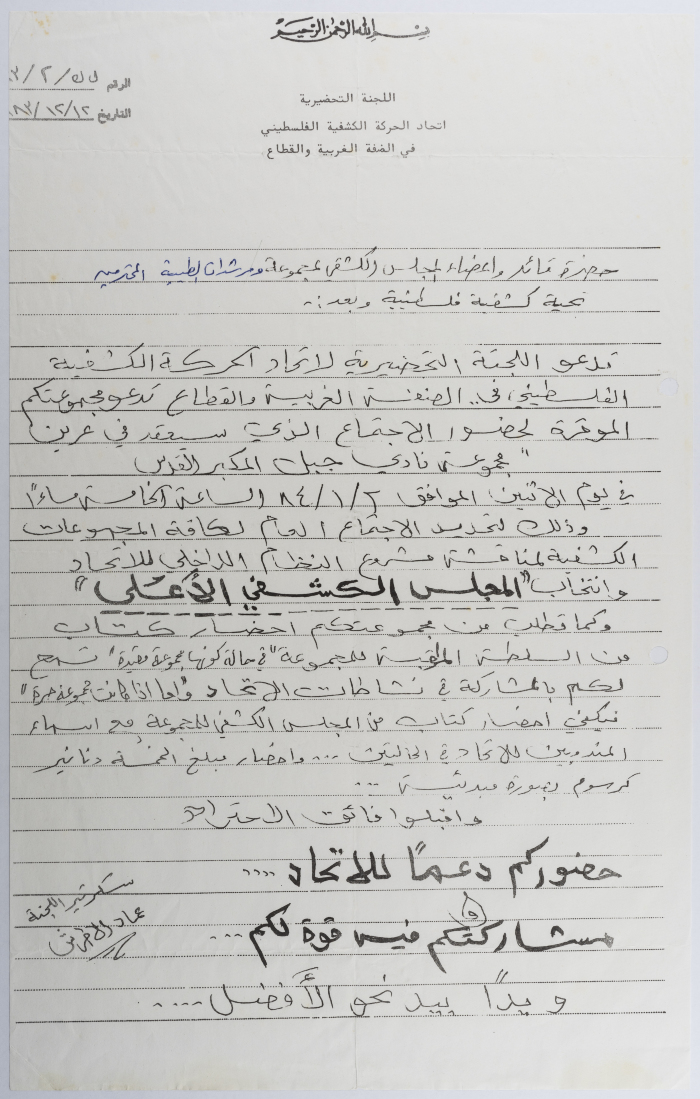 بسم الله الرحمن الرحيم
الرقم
التاريخ ٨٣/١٢/١٢
اللجنة التحضيرية
اتحاد الحركة الكشفية الفلسطيني
في الضفة الغربية والقطاع
حضرة قائد واعضاء المجلس الكشفي لمجموعة ومرشدات الطيبة المحترمين
تحية كشفية فلسطينية وبعد:-
تدعو اللجنة التحضيرية لاتحاد الحركة الكشفية
الفلسطيني في.. الضفة الغربية والقطاع تدعو مجموعتكم
الموقرة لحضور الاجتماع الذي سيعقد في عرين
"مجموعة نادي جبل المكبر القدس
في يوم الاثنين الموافق ٨٤/١/٢ الساعة الخامسة مساءً
وذلك لتحديد الاجتماع العام لكافة المجموعات
الكشفية لمناقشة مشروع النظام الداخلي للاتحاد
وانتخاب "المجلس الكشفي الأعلى"
وكما تطلب من مجموعتكم احضار كتاب
من السلطة للمجموعة "في حالة كونها مجموعة مقيدة" تسمح
لكم بالمشاركة في نشاطات الاتحاد واما اذا كانت مجموعة حرة"
فيكفي احضار كتاب من المجلس الكشفي للمجموعة مع اسماء
المندوبين للاتحاد في الحالتين ... واحضار مبلغ الخمسة دنانير
كرسوم بصورة مبدئية ...
واقبلوا فائق الاحترام
حضوركم دعماً للاتحاد ....
مشاركتكم فيه قوة لكم ...
ويداً بيد نحو الأفضل .....
سكرتير اللجنة
عماد